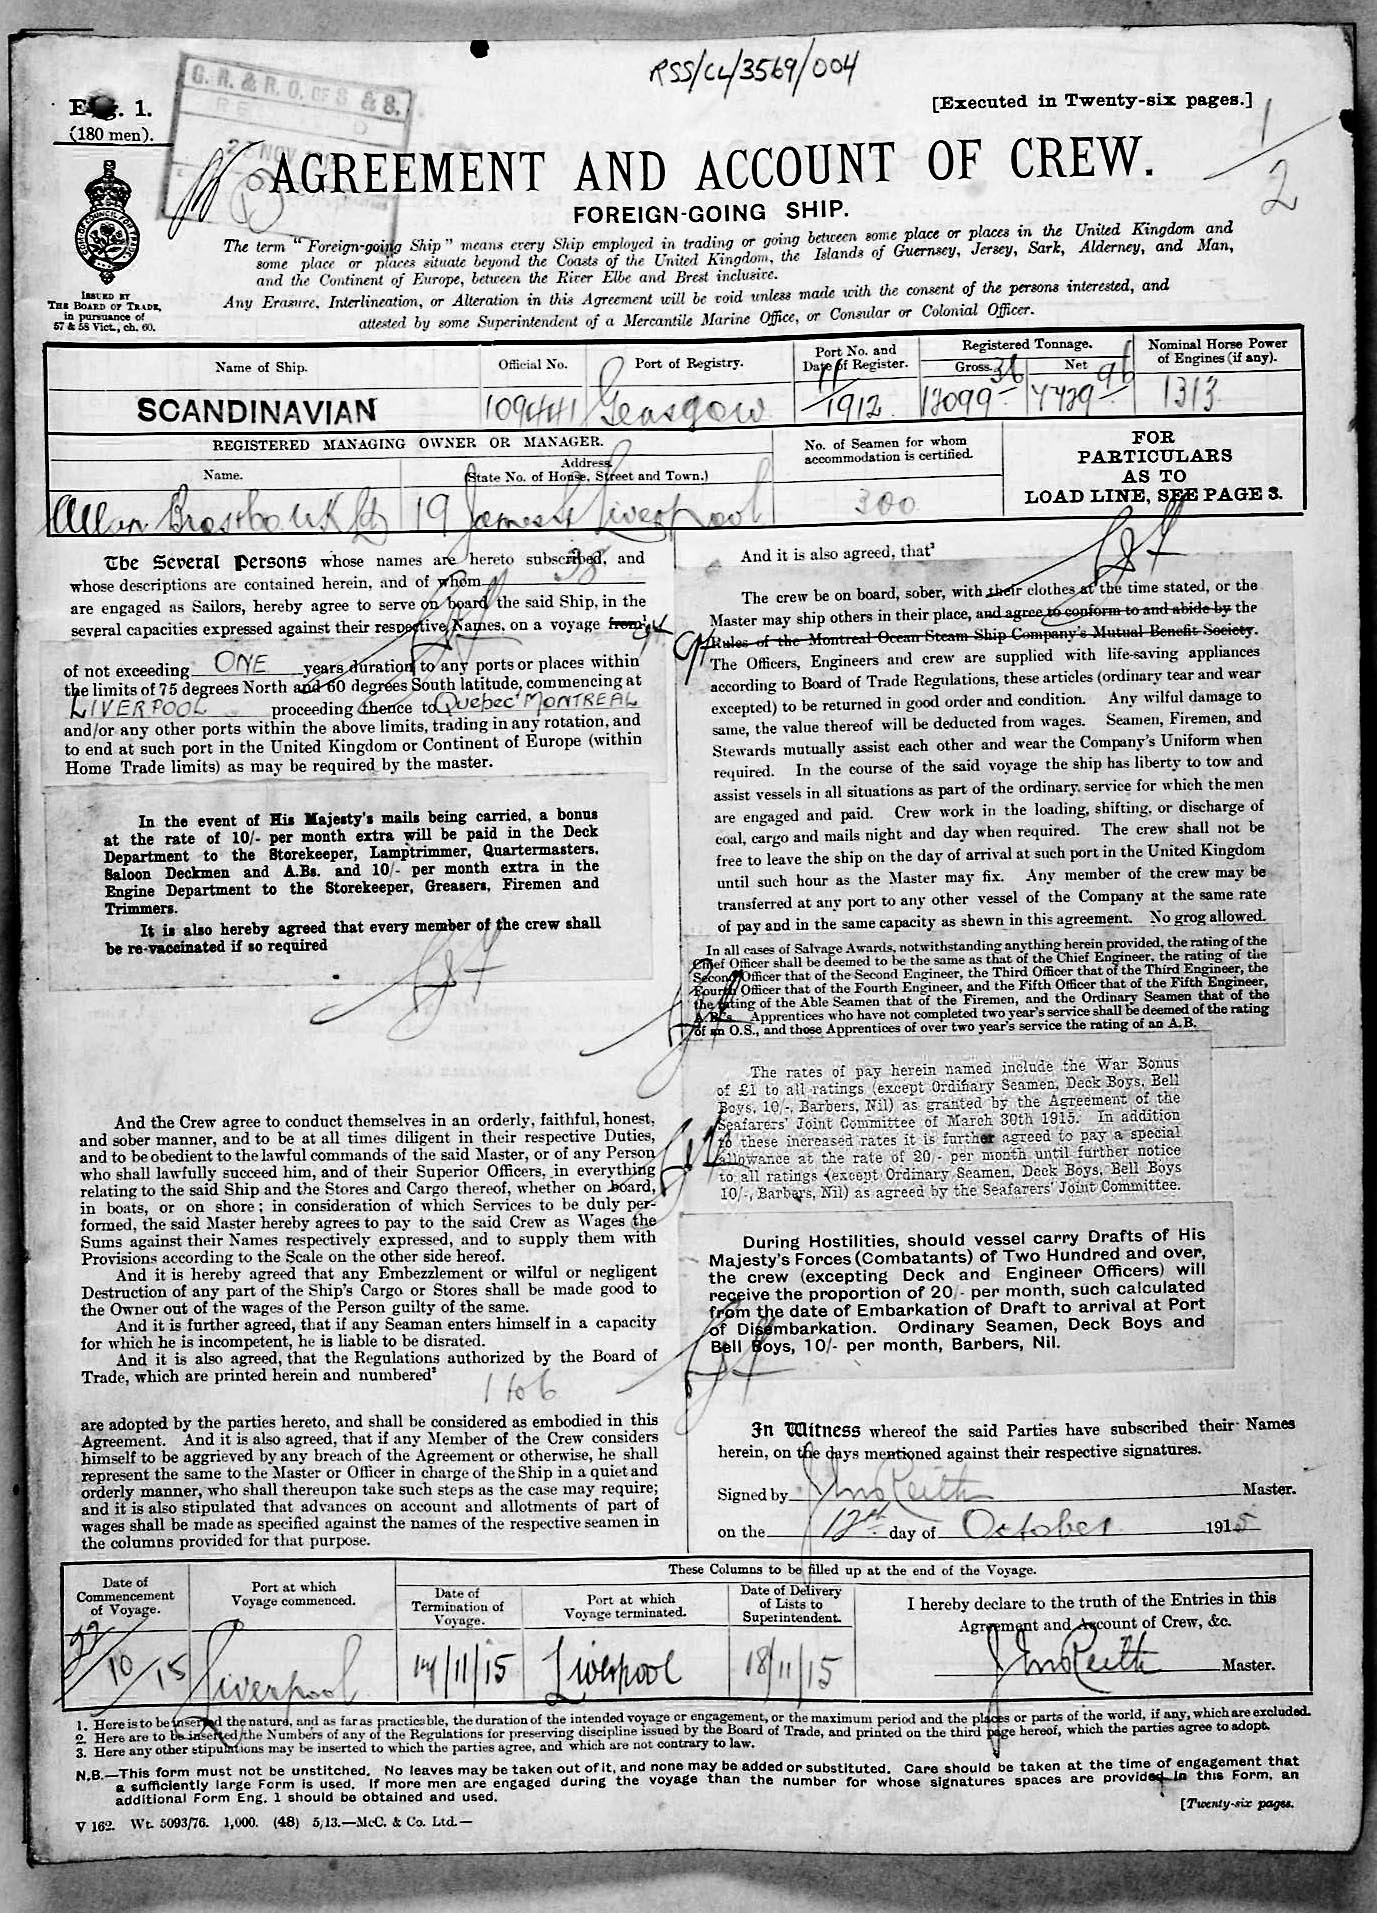 RSS/CL/3569/004
G. R. & R. O. OF S & S.
NOV
[Executed in Twenty-six pages.]
1
2
1.
(180 men).
AGREEMENT AND ACCOUNT OF CREW.
FOREIGN-GOING SHIP.
The term "Foreign-going Ship" means every Ship employed in trading or going between some place or places in the United Kingdom and
some place or places situate beyond the Coasts of the United Kingdom, the Islands of Guernsey, Jersey, Sark, Alderney, and Man,
and the Continent of Europe, between the River Elbe and Brest inclusive.
Any Erasure, Interlineation, or Alteration in this Agreement will be void unless made with the consent of the persons interested, and
attested by some Superintendent of a Mercantile Marine Office, or Consular or Colonial Officer.
ISSUED BY
THE BOARD OF TRADE,
in pursuance of
57 & 58 Vict., ch. 60.
Name of Ship.
Official No.
Port of Registry.
Port No. and
Date of Register.
Registered Tonnage.
Gross.
Net
Nominal Horse Power
of Engines (if any).
SCANDINAVIAN
109441
Glasgow
11/1912
12099 36
7729 96
1313
REGISTERED MANAGING OWNER OR MANAGER.
Name.
Address.
(State No. of House, Street and Town.)
No. of Seamen for whom
accommodation is certified.
FOR
PARTICULARS
AS TO
LOAD LINE, SEE PAGE 3.
Allan Bros & Co UK Ld
19 James St Liverpool
300
The Several Persons whose names are hereto subscribed, and
whose descriptions are contained herein, and of whom 38
are engaged as Sailors, hereby agree to serve on board the said Ship, in the
several capacities expressed against their respective Names, on a voyage from
of not exceeding ONE years duration to any ports or places within
the limits of 75 degrees North and 60 degrees South latitude, commencing at
LIVERPOOL proceeding thence to Quebec MONTREAL
and/or any other ports within the above limits, trading in any rotation, and
to end at such port in the United Kingdom or Continent of Europe (within
Home Trade limits) as may be required by the master.
In the event of His Majesty's mails being carried, a bonus
at the rate of 10/- per month extra will be paid in the Deck
Department to the Storekeeper, Lamptrimmer, Quartermasters,
Saloon Deckmen and A.Bs. and 10/- per month extra in the
Engine Department to the Storekeeper, Greasers, Firemen and
Trimmers.
It is also hereby agreed that every member of the crew shall
be re-vaccinated if so required
And the Crew agree to conduct themselves in an orderly, faithful, honest,
and sober manner, and to be at all times diligent in their respective Duties,
and to be obedient to the lawful commands of the said Master, or of any Person
who shall lawfully succeed him, and of their Superior Officers, in everything
relating to the said Ship and the Stores and Cargo thereof, whether on board,
in boats, or on shore; in consideration of which Services to be duly per-
formed, the said Master hereby agrees to pay to the said Crew as Wages the
Sums against their Names respectively expressed, and to supply them with
Provisions according to the Scale on the other side hereof.
And it is hereby agreed that any Embezzlement or wilful or negligent
Destruction of any part of the Ship's Cargo or Stores shall be made good to
the Owner out of the wages of the Person guilty of the same.
And it is further agreed, that if any Seaman enters himself in a capacity
for which he is incompetent, he is liable to be disrated.
And it is also agreed, that the Regulations authorized by the Board of
Trade, which are printed herein and numbered²
1 to 6
are adopted by the parties hereto, and shall be considered as embodied in this
Agreement. And it is also agreed, that if any Member of the Crew considers
himself to be aggrieved by any breach of the Agreement or otherwise, he shall
represent the same to the Master or Officer in charge of the Ship in a quiet and
orderly manner, who shall thereupon take such steps as the case may require;
and it is also stipulated that advances on account and allotments of part of
wages shall be made as specified against the names of the respective seamen in
the columns provided for that purpose.
And it is also agreed, that³
The crew be on board, sober, with their clothes at the time stated, or the
Master may ship others in their place, and agree to conform to and abide by the
Rules of the Montreal Ocean Steam Ship Company's Mutual Benefit Society.
The Officers, Engineers and crew are supplied with life-saving appliances
according to Board of Trade Regulations, these articles (ordinary tear and wear
excepted) to be returned in good order and condition. Any wilful damage to
same, the value thereof will be deducted from wages. Seamen, Firemen, and
Stewards mutually assist each other and wear the Company's Uniform when
required. In the course of the said voyage the ship has liberty to tow and
assist vessels in all situations as part of the ordinary service for which the men
are engaged and paid. Crew work in the loading, shifting, or discharge of
coal, cargo and mails night and day when required. The crew shall not be
free to leave the ship on the day of arrival at such port in the United Kingdom
until such hour as the Master may fix. Any member of the crew may be
transferred at any port to any other vessel of the Company at the same rate
of pay and in the same capacity as shewn in this agreement. No grog allowed.
In all cases of Salvage Awards, notwithstanding anything herein provided, the rating of the
Chief Officer shall be deemed to be the same as that of the Chief Engineer, the rating of the
Second Officer that of the Second Engineer, the Third Officer that of the Third Engineer, the
Fourth Officer that of the Fourth Engineer, and the Fifth Officer that of the Fifth Engineer,
the rating of the Able Seamen that of the Firemen, and the Ordinary Seamen that of the
A.B.'s. Apprentices who have not completed two year's service shall be deemed of the rating
of an O.S., and those Apprentices of over two year's service the rating of an A.B.
The rates of pay herein named include the War Bonus
of £1 to all ratings (except Ordinary Seamen, Deck Boys, Bell
Boys, 10/-, Barbers, Nil) as granted by the Agreement of the
Seafarers' Joint Committee of March 30th 1915. In addition
to these increased rates it is further agreed to pay a special
allowance at the rate of 20/- per month until further notice
to all ratings (except Ordinary Seamen, Deck Boys, Bell Boys
10/-, Barbers, Nil) as agreed by the Seafarers' Joint Committee.
During Hostilities, should vessel carry Drafts of His
Majesty's Forces (Combatants) of Two Hundred and over,
the crew (excepting Deck and Engineer Officers) will
receive the proportion of 20/- per month, such calculated
from the date of Embarkation of Draft to arrival at Port
of Disembarkation. Ordinary Seamen, Deck Boys and
Bell Boys, 10/- per month, Barbers, Nil.
In Witness whereof the said Parties have subscribed their Names
herein, on the days mentioned against their respective signatures.
Signed by Jno Reith Master.
on the 12th day of October 1915
Date of
Commencement
of Voyage.
Port at which
Voyage commenced.
These Columns to be filled up at the end of the Voyage.
Date of
Termination of
Voyage.
Port at which
Voyage terminated.
Date of Delivery
of Lists to
Superintendent.
I hereby declare to the truth of the Entries in this
Agreement and Account of Crew, &c.
22/10/15
Liverpool
14/11/15
Liverpool
18/11/15
Jno Reith Master.
1. Here is to be inserted the nature, and as far as practicable, the duration of the intended voyage or engagement, or the maximum period and the places or parts of the world, if any, which are excluded.
2. Here are to be inserted the Numbers of any of the Regulations for preserving discipline issued by the Board of Trade, and printed on the third page hereof, which the parties agree to adopt.
3. Here any other stipulations may be inserted to which the parties agree, and which are not contrary to law.
N.B.—This form must not be unstitched. No leaves may be taken out of it, and none may be added or substituted. Care should be taken at the time of engagement that
a sufficiently large Form is used. If more men are engaged during the voyage than the number for whose signatures spaces are provided in this Form, an
additional Form Eng. 1 should be obtained and used.
[Twenty-six pages.
V 162. Wt. 5093/76. 1,000. (48) 5/13.—McC. & Co. Ltd.—